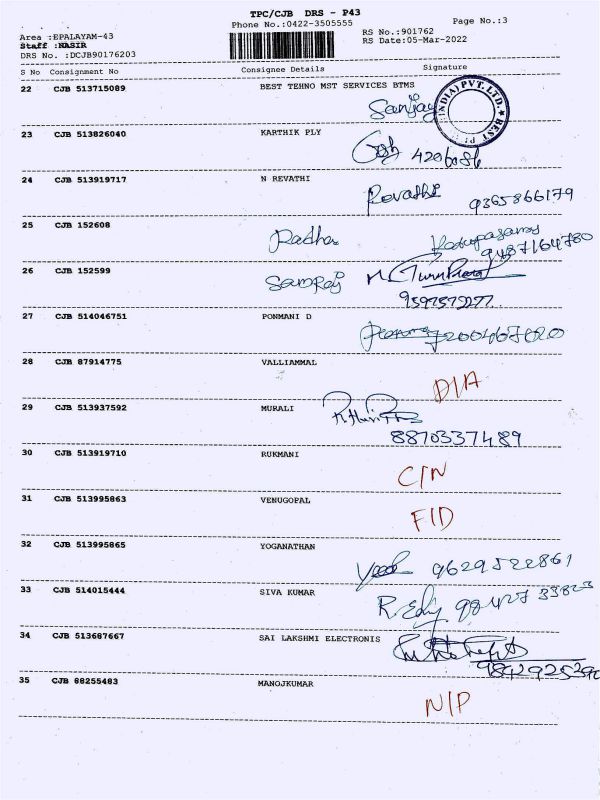 TPC/CJB DRS - P43
Phone No.:0422-3505555
Page No.:3
Area :EPALAYAM-43
RS No.:901762
Staff :NASIR
RS Date:05-Mar-2022
DRS No. :DCJB90176203
S No Consignment No Consignee Details Signature
22 CJB 513715089 BEST TEHNO MST SERVICES BTMS
Sanjay
(INDIA) PVT. LTD. ★ BEST
23 CJB 513826040 KARTHIK PLY
24 CJB 513919717 N REVATHI
Revathi 9365866179
25 CJB 152608
Radha
9487164780
26 CJB 152599
Samraj
9597575277
27 CJB 514046751 PONMANI D
28 CJB 87914775 VALLIAMMAL
D/A
29 CJB 513937592 MURALI
8870337489
30 CJB 513919710 RUKMANI
C/N
31 CJB 513995863 VENUGOPAL
F/D
32 CJB 513995865 YOGANATHAN
9629522861
33 CJB 514015444 SIVA KUMAR
98427 33823
34 CJB 513687667 SAI LAKSHMI ELECTRONIS
35 CJB 88255483 MANOJKUMAR
N/P